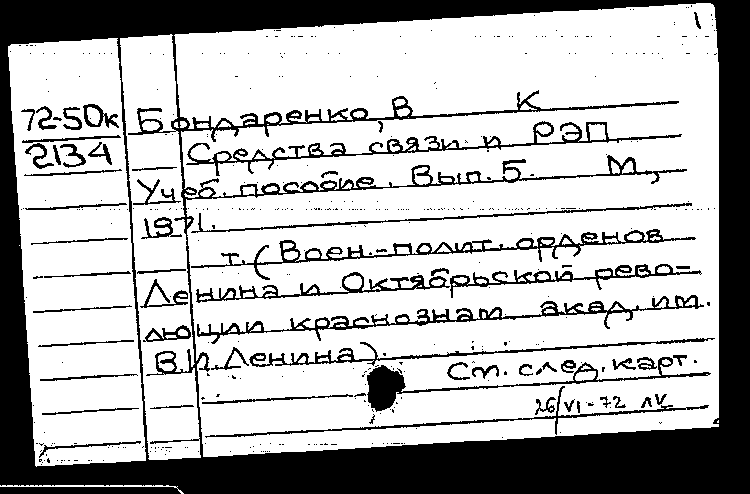 1
72-50к Бондаренко, В К
2134 Средства связи и РЭП
Учеб. пособие. Вып. 5. М.,
1971.
т. (Воен.-полит. орденов
Ленина и Октябрьской рево-
люции краснознам. акад. им.
В.И. Ленина).
См. след. карт.
26/VI-72 ЛК